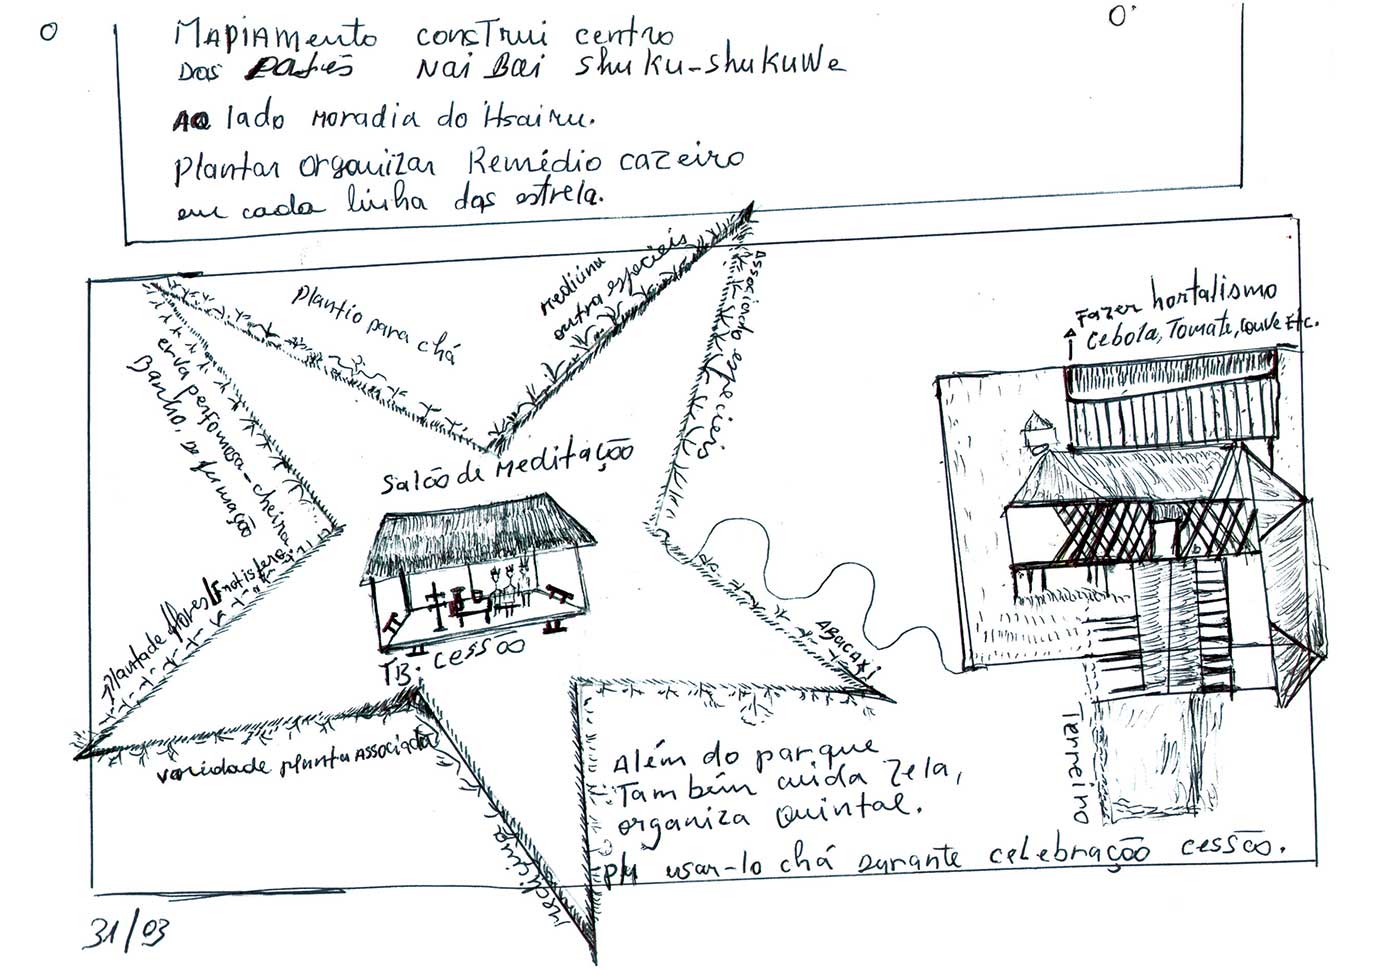 Mapiamento construi centro
das Nai Bai Shuku-Shukuwe
ao lado moradia do Isairu.
Plantar organizar Remédio cazeiro
em cada linha das estrela.
Plantio para chá
Medicina
outra especieis
Associado especieis
erva perfomosa-cheira
Banho, Defumação
Salão de Meditação
TB. cessão
Planta de flores
variedade planta Associada
Medicina
Abacaxi
Fazer hortalismo
Cebola, Tomate, couve Etc.
Terreino
Além do parque
Também cuida zela,
organiza Quintal.
usar-lo chá Durante celebração cessão.
31/03